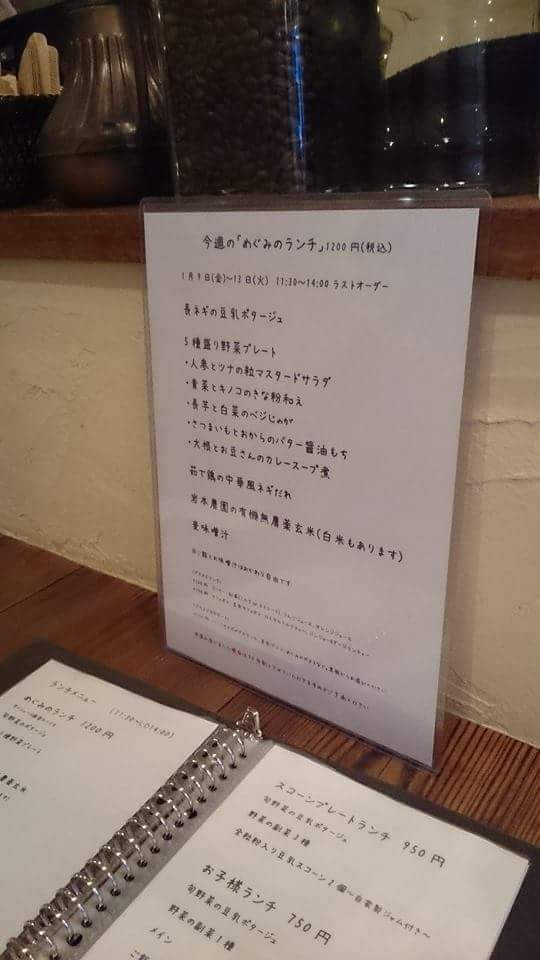 今週の「めぐみのランチ」1200円(税込)
1月9日(金)~13日(火) 11:30~14:00 ラストオーダー
長ネギの豆乳ポタージュ
5種盛り野菜プレート
・人参とツナの粒マスタードサラダ
・青菜とキノコのきな粉和え
・長芋と白菜のベジじゃが
・さつまいもとおからのバター醤油もち
・大根とお豆さんのカレースープ煮
茹で鶏の中華風ネギだれ
岩本農園の有機無農薬玄米(白米もあります)
麦味噌汁
※ご飯とお味噌汁はおかわり自由です
ランチメニュー (11:30~LO14:00)
めぐみのランチ 1200円
旬野菜のポタージュ
スコーンプレートランチ 950円
旬野菜の豆乳ポタージュ
野菜の副菜3種
全粒粉入り豆乳スコーン2個~自家製ジャム付き~
お子様ランチ 750円
旬野菜の豆乳ポタージュ
野菜の副菜1種
メイン